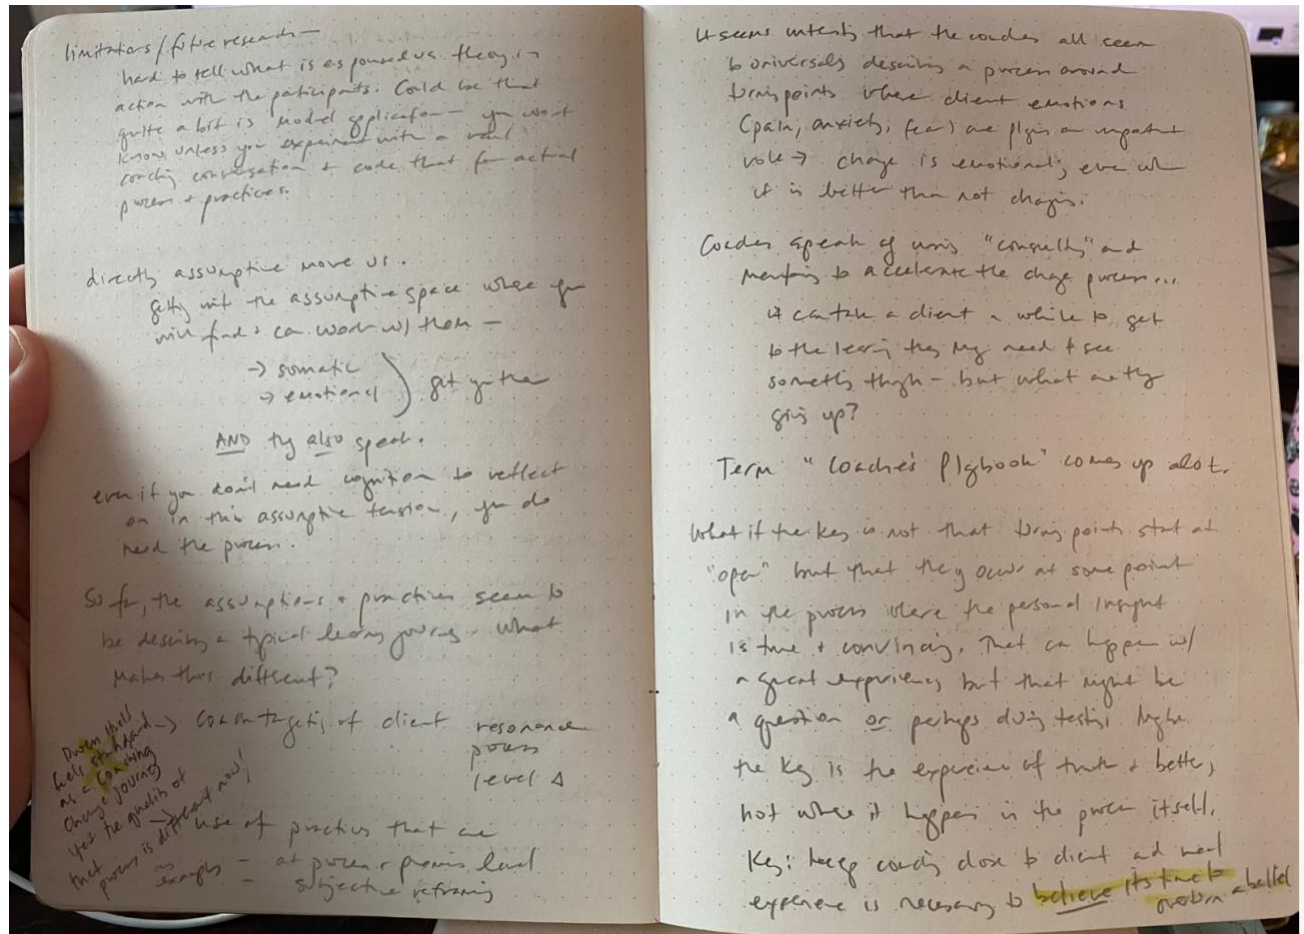 limitations/future research —
hard to tell what is espoused vs. theory in
action with the participants. Could be that
quite a bit is model application — you won't
know unless you experiment with a real
coaching conversation + code that for actual
process + practices.
directly assumptive move us.
getting into the assumptive space where you
will find + can work w/ them —
→ somatic
→ emotional
get you there
AND they also speak.
even if you don't need cognition to reflect
on in this assumptive tension, you do
need the process.
So far, the assumptions + practices seem to
be describing a typical learning journey. What
makes this different?
→ coach targeting of client
resonance
process
level Δ
Process itself
feels standard
as a coaching
change journey
Yet the qualities of
that process is different now!
→ use of practices that are
as examples
– at process + premise level
– subjective reframing
It seems interesting that the coaches all seem
to universally describing a process around
turning points where client emotions
(pain, anxiety, fear) are playing an important
role → change is emotional, even when
it is better than not changing.
Coaches speak of using "consulting" and
mentoring to accelerate the change process...
it can take a client a while to get
to the learning they may need to see
something through – but what are they
giving up?
Term "Coache's Playbook" comes up alot.
What if the key is not that turning points start at
"open" but that they occur at some point
in the process where the personal insight
is true + convincing. That can happen w/
a great experience but that might be
a question or perhaps during testing. Maybe
the key is the experience of truth + better,
not where it happens in the process itself.
Key: keep coaching close to client and
experience is necessary to believe its time to
overturn a belief